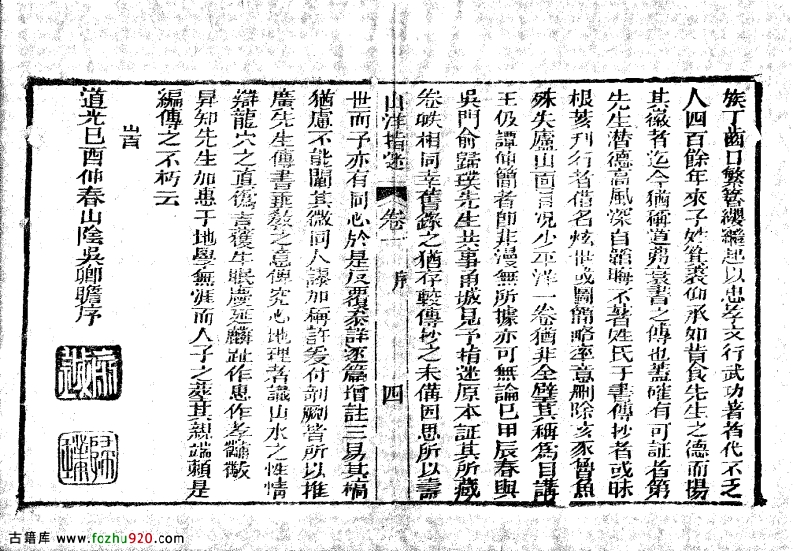 族丁齒口繁簪纓繼起以忠孝文行武功著者代不乏
人四百餘年來子姓箕裘仰承如昔食先生之德而揚
其徽者迄今猶稱道弗衰書之傳也蓋確有可証者第
先生潜德高風深自韜晦不著姓氏于書傳抄者或昧
根荄刊行者借名炫世或圖簡略率意刪除亥豕魯魚
殊失廬山面目况少平洋一卷猶非全璧其稱爲目講
王仍譚仲簡者卽非漫無所據亦可無論已甲辰春與
吳門俞歸璞先生共事甬城見予指迷原本証其所藏
卷帙相同幸舊錄之猶存較傳抄之未備因思所以壽
山洋指迷 卷一 序 四
世而予亦有同心於是反覆叅詳逐篇增註三易其稿
猶慮不能闡其微同人謬加稱許爰付剞劂皆所以推
廣先生傳書垂教之意俾究心地理者識山水之性情
辯龍穴之眞僞吉獲牛眠慶延麟趾作忠作孝黼黻
昇知先生加惠于地學無涯而人子之葬其親端賴是
編傳之不朽云
旹
道光己酉仲春山陰吳卿瞻序
古籍库 www.fczhu920.com